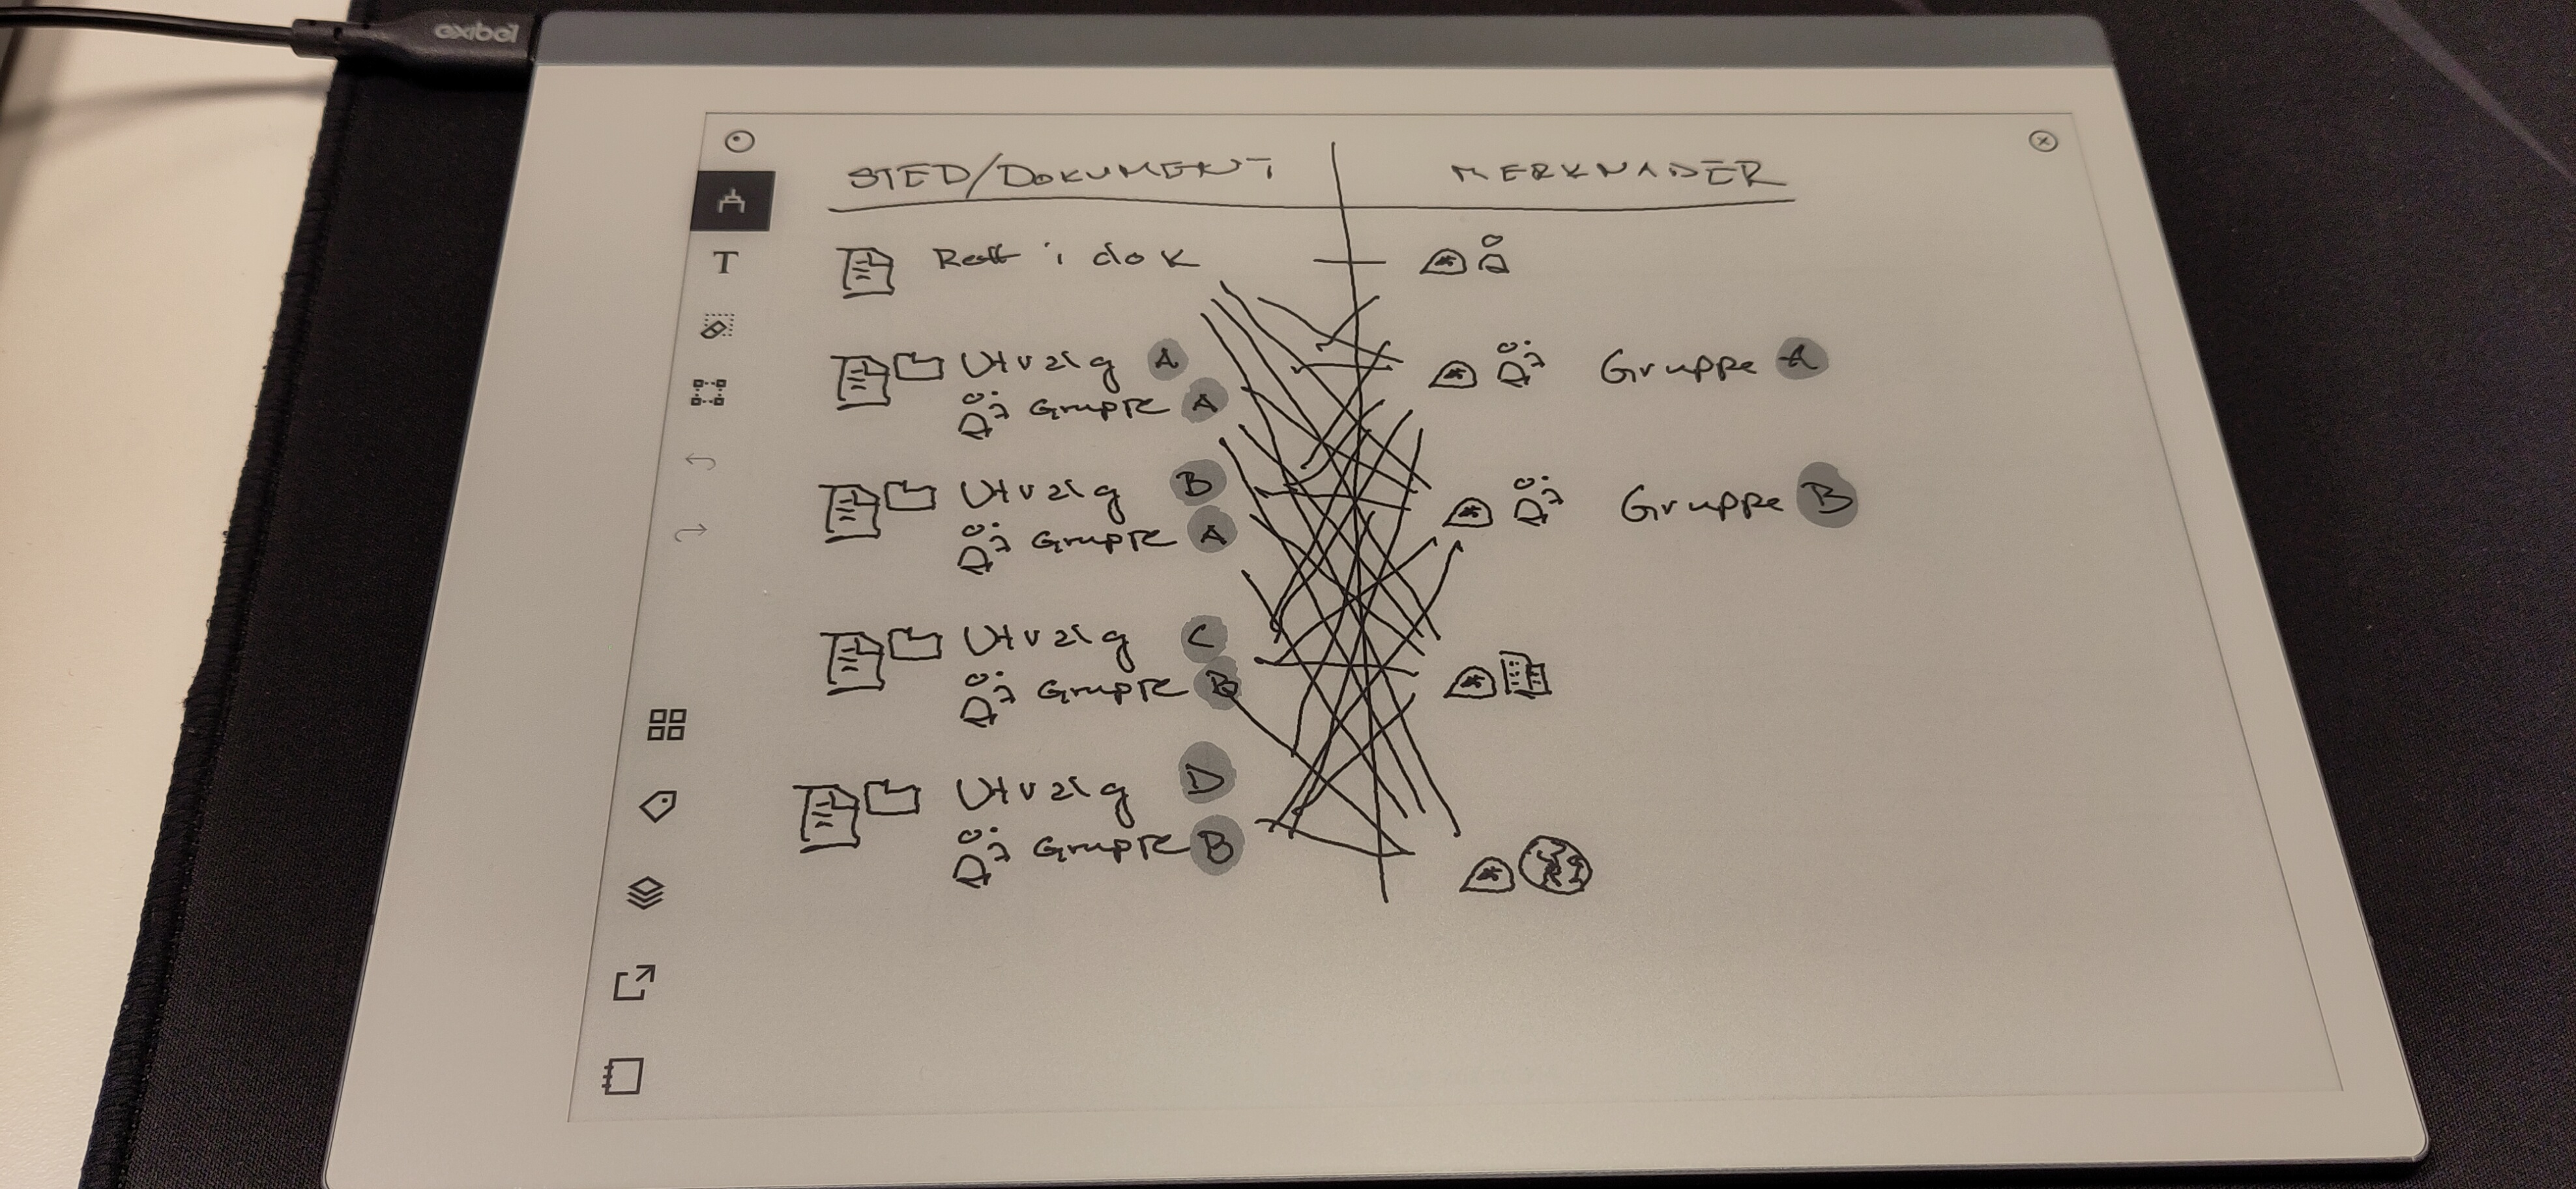 axibel
STED/DOKUMENT
MERKNADER
T
i dok
Utvalg A
Gruppe A
Gruppe A
Utvalg B
Gruppe A
Gruppe B
Utvalg C
Gruppe B
Utvalg D
Gruppe B